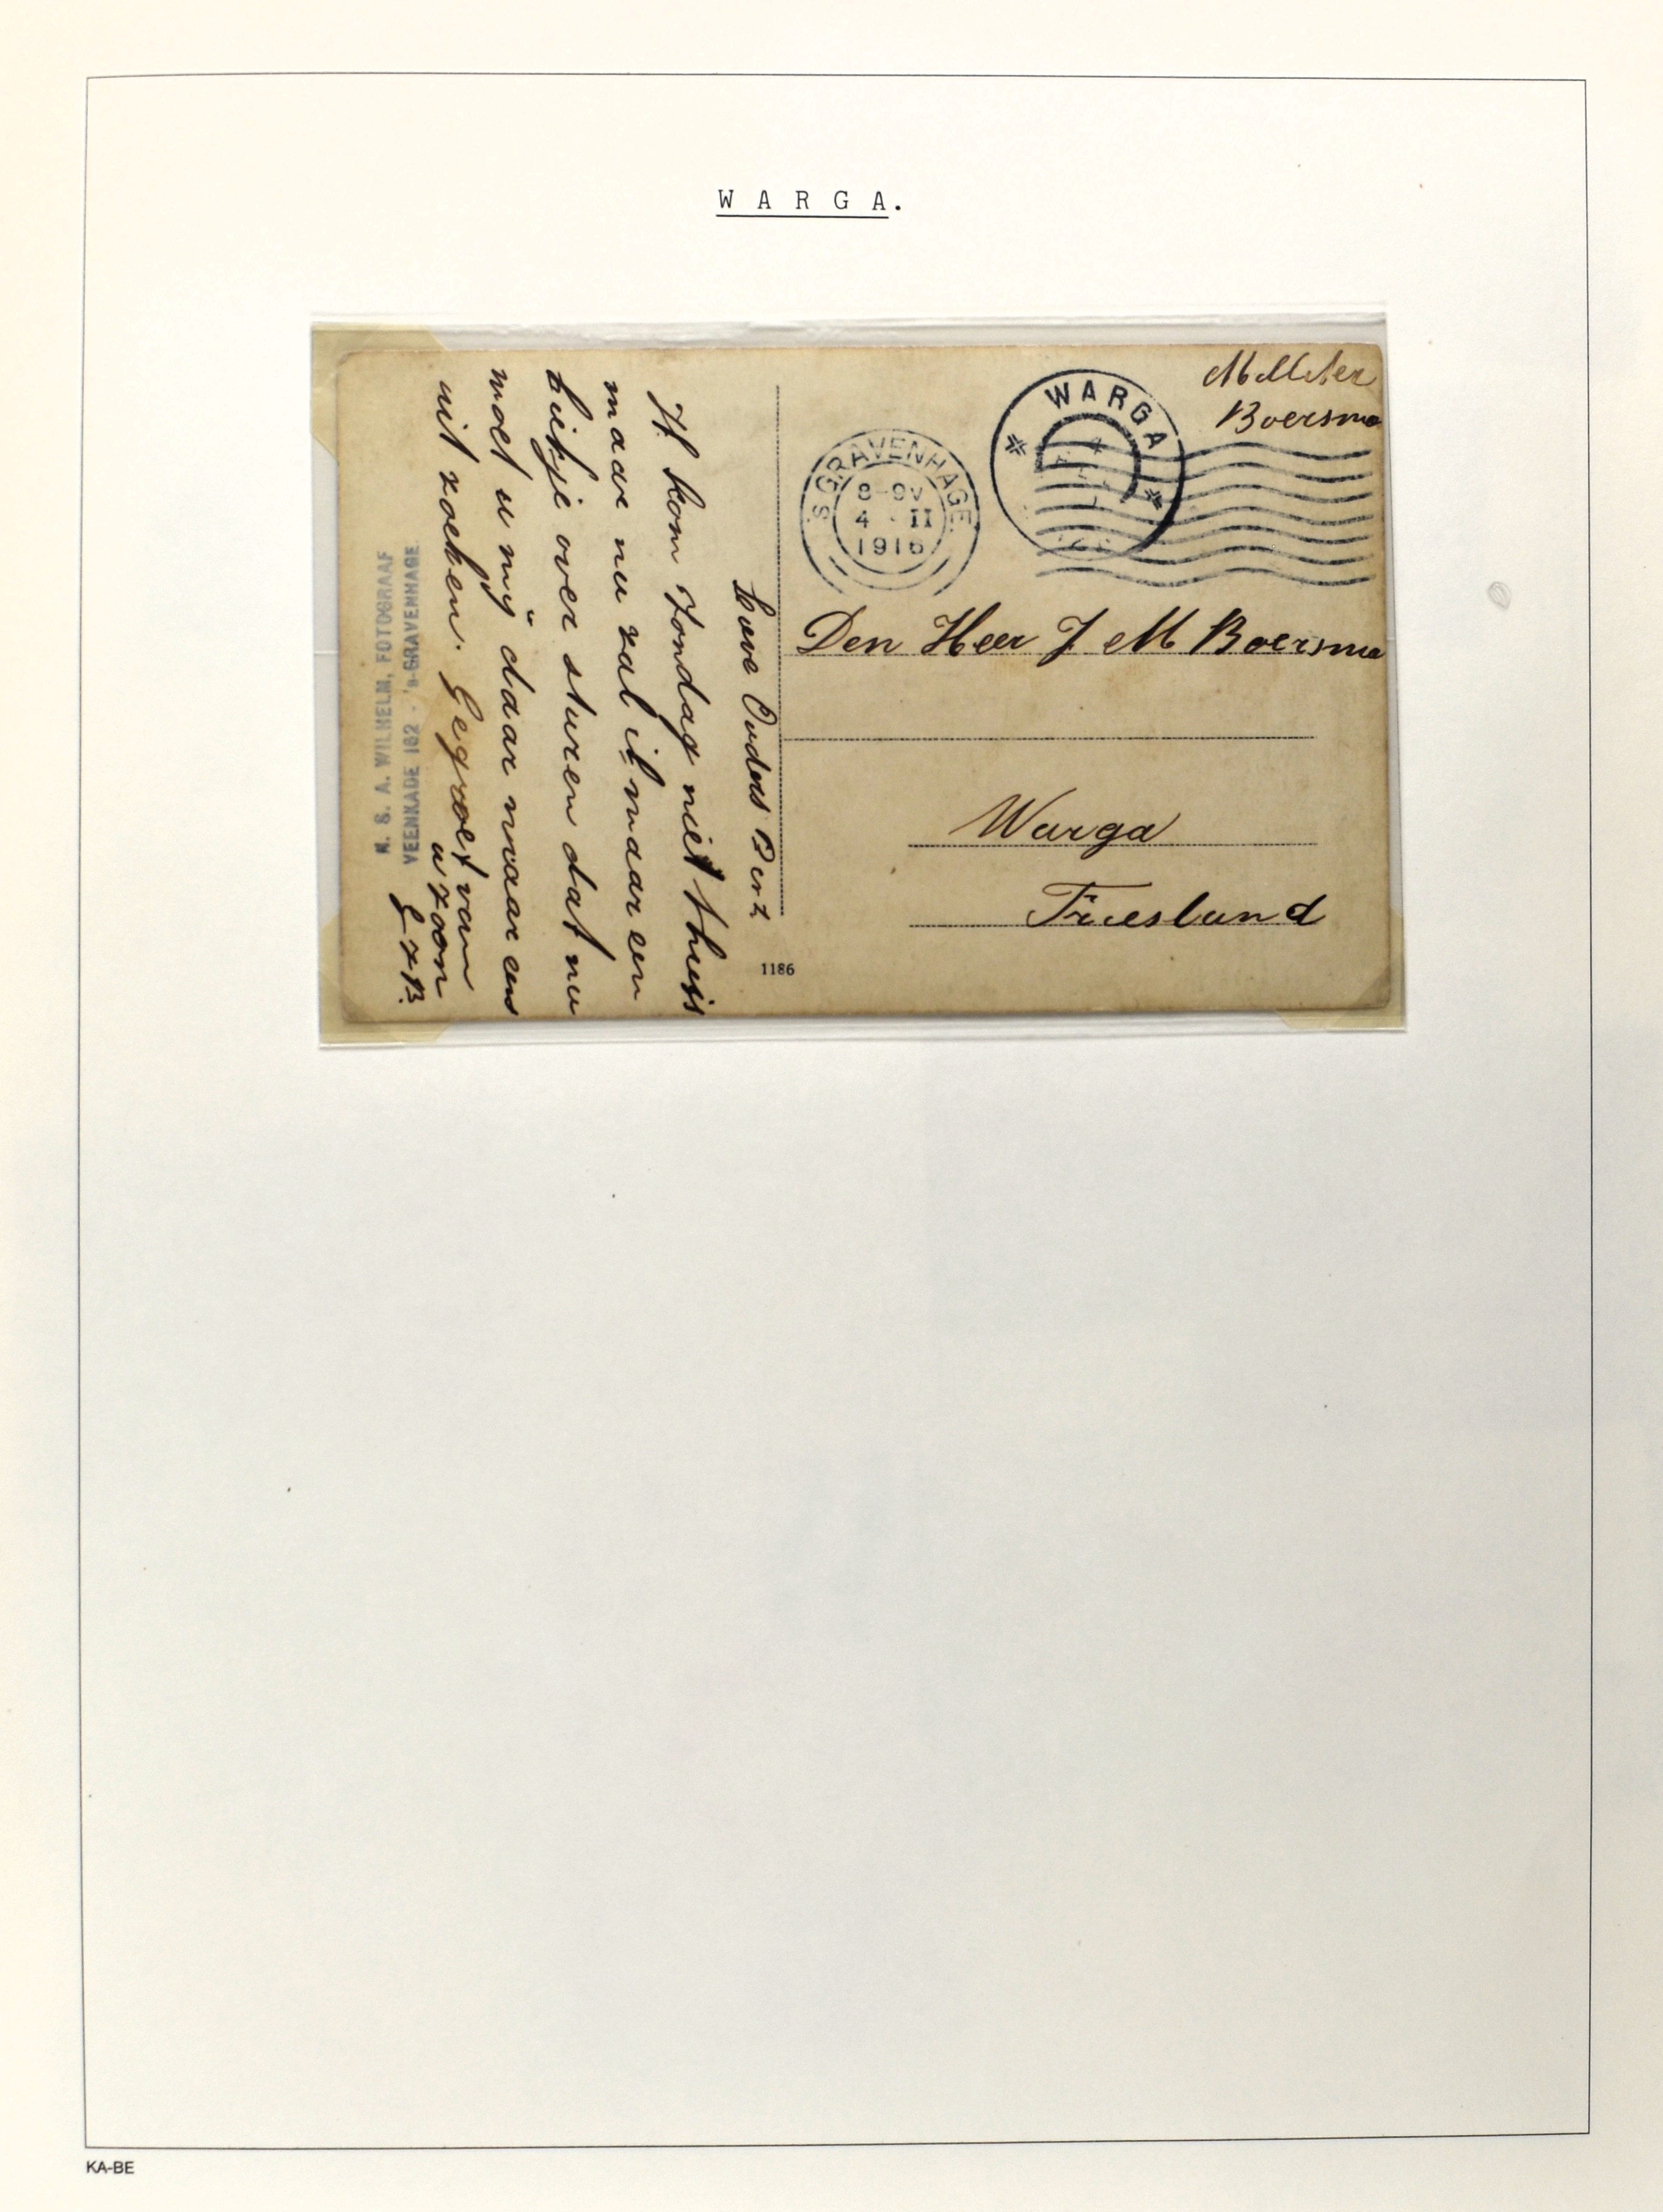 WARGA.
Militer
Boersma
WARGA
'S GRAVENHAGE
8-9V
4 · II
1916
Den Heer J M Boersma
Warga
Friesland
Lieve Ouders
Ik kom Zondag niet thuis
maar nu zal ik maar een
kiekje over sturen dat nu
moet u mij daar maar eens
uit zoeken. Gegroet van
u zoon
1186
N. S. A. WILHELM, FOTOGRAAF
VEENKADE 162 - 's-GRAVENHAGE.
KA-BE